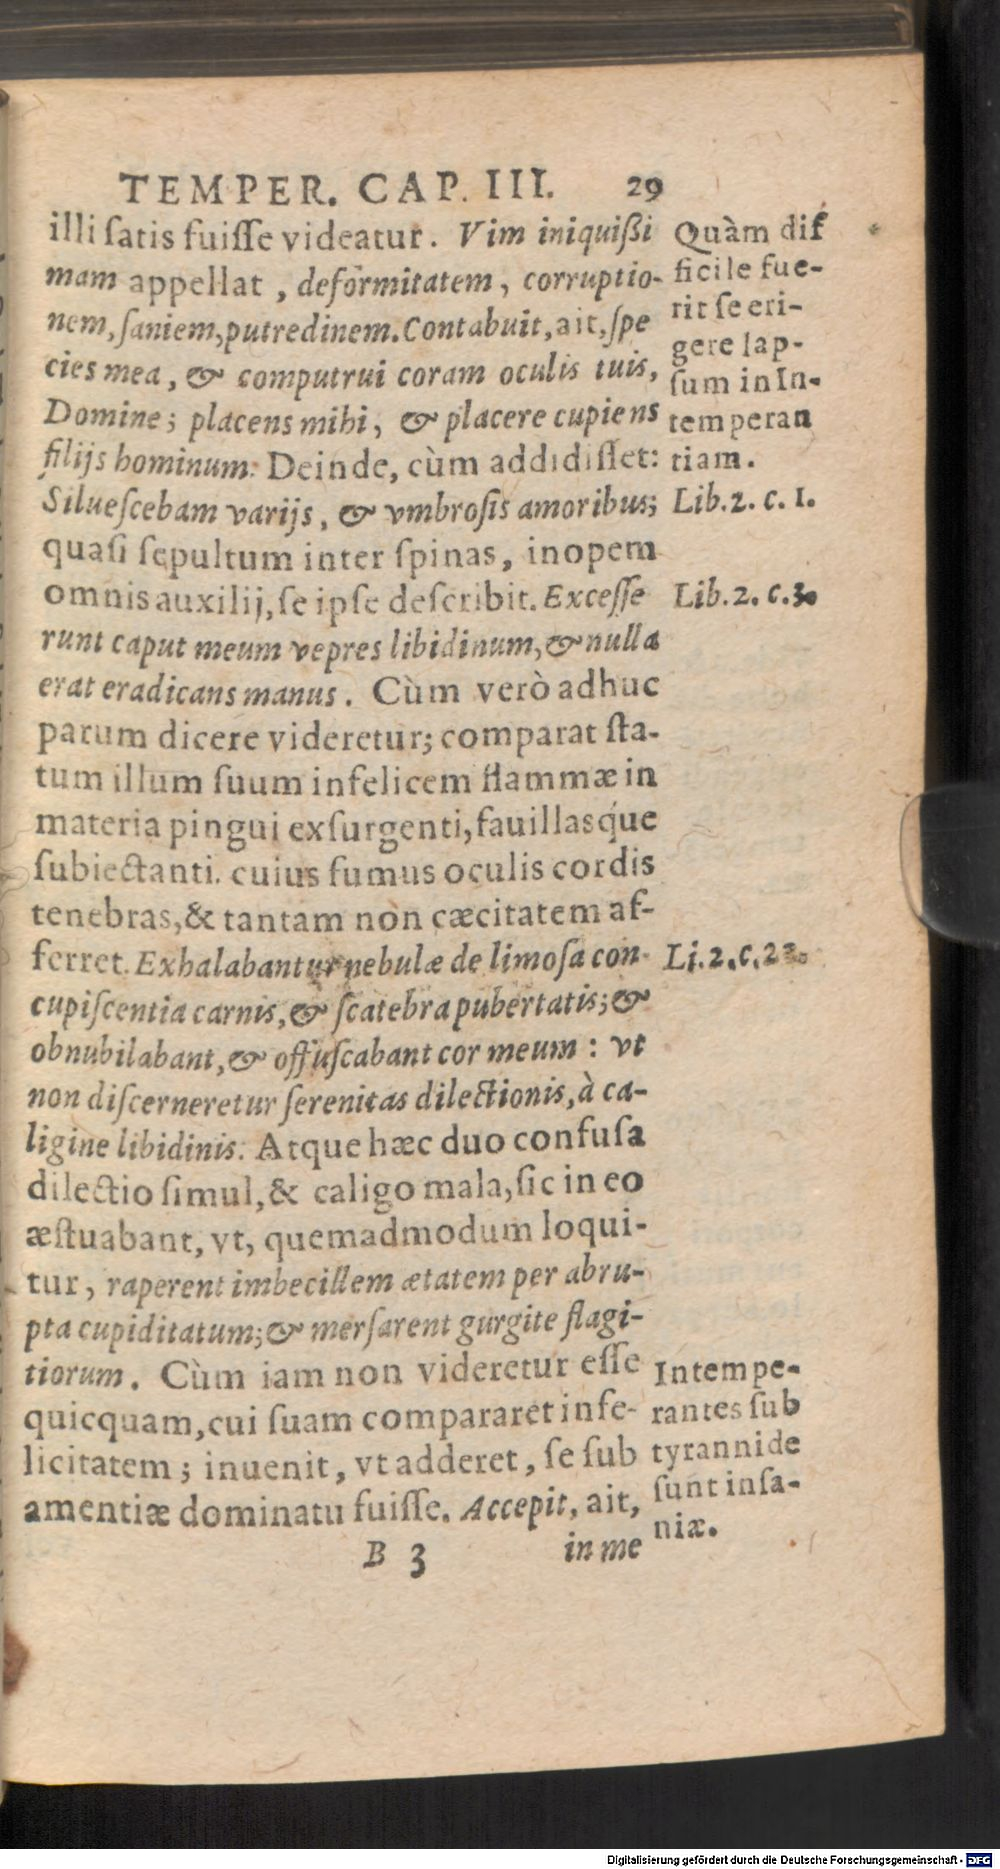 TEMPER. CAP. III. 29
illi ſatis fuiſſe videatur. Vim iniquißi
mam appellat, deformitatem, corruptio-
nem, ſaniem, putredinem. Contabuit, ait, ſpe
cies mea, & computrui coram oculis tuis,
Domine; placens mihi, & placere cupiens
filijs hominum. Deinde, cùm addidiſſet:
Silueſcebam varijs, & vmbroſis amoribus;
quaſi ſepultum inter ſpinas, inopem
omnis auxilij, ſe ipſe deſcribit. Exceſſe
runt caput meum vepres libidinum, & nulla
erat eradicans manus. Cùm verò adhuc
parum dicere videretur; comparat ſta-
tum illum ſuum infelicem flammæ in
materia pingui exſurgenti, fauillasq́ue
ſubiectanti. cuius fumus oculis cordis
tenebras, & tantam non cæcitatem af-
ferret. Exhalabantur nebulæ de limoſa con-
cupiſcentia carnis, & ſcatebra pubertatis; &
obnubilabant, & offuſcabant cor meum : vt
non diſcerneretur ſerenitas dilectionis, à ca-
ligine libidinis. Atque hæc duo confuſa
dilectio ſimul, & caligo mala, ſic in eo
æſtuabant, vt, quemadmodum loqui-
tur, raperent imbecillem ætatem per abru-
pta cupiditatum; & merſarent gurgite flagi-
tiorum. Cùm iam non videretur eſſe
quicquam, cui ſuam compararet infe-
licitatem; inuenit, vt adderet, ſe ſub
amentiæ dominatu fuiſſe. Accepit, ait,
B 3 in me
Quàm dif
ficile fue-
rit ſe eri-
gere lap-
ſum in In-
temperan
tiam.
Lib. 2. c. 1.
Lib. 2. c. 3.
Li. 2. c. 22.
Intempe-
rantes ſub
tyrannide
ſunt inſa-
niæ.
Digitalisierung gefördert durch die Deutsche Forschungsgemeinschaft - DFG